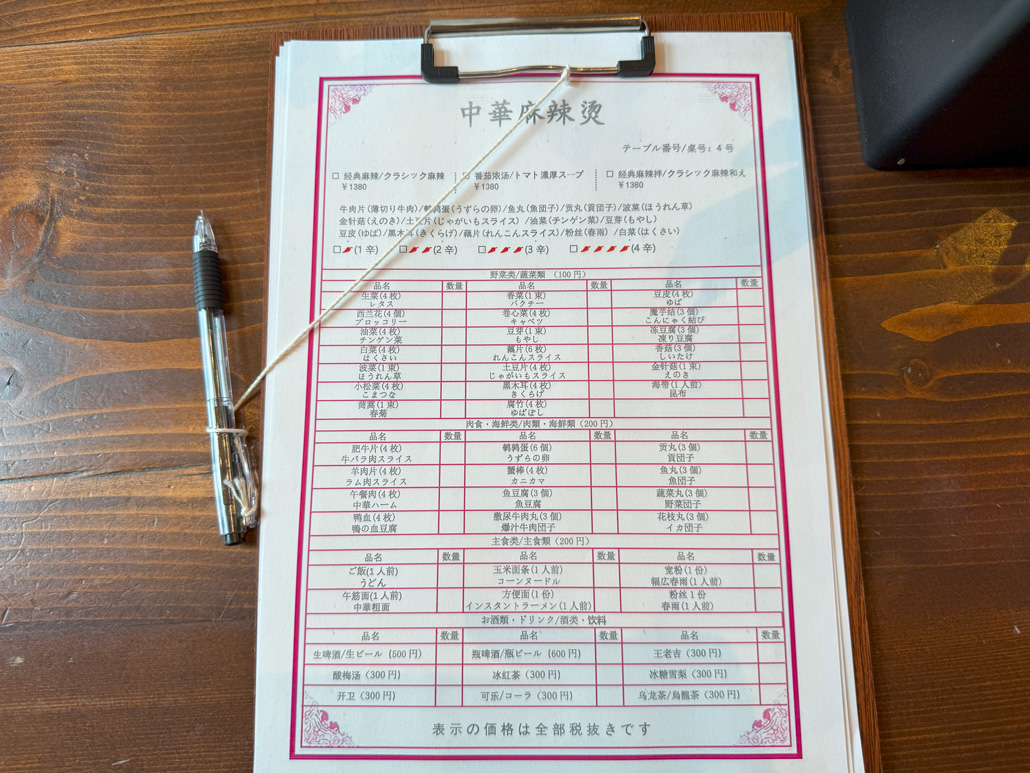 中華麻辣烫
テーブル番号/桌号: 4号
□ 经典麻辣/クラシック麻辣 □ 番茄浓汤/トマト濃厚スープ □ 经典麻辣拌/クラシック麻辣和え
¥1380 ¥1380 ¥1380
牛肉片(薄切り牛肉)/鹌鹑蛋(うずらの卵)/鱼丸(魚団子)/贡丸(貢団子)/波菜(ほうれん草)
金针菇(えのき)/土豆片(じゃがいもスライス) /油菜(チンゲン菜)/豆芽(もやし)
豆皮(ゆば)/黑木耳(きくらげ)/藕片(れんこんスライス)/粉丝(春雨) /白菜(はくさい)
□(1 辛) □(2 辛) □(3 辛) □(4 辛)
野菜类/蔬菜類 (100円)
品名 数量 品名 数量 品名 数量
生菜(4枚) 香菜(1束) 豆皮(4枚)
レタス パクチー ゆば
西兰花(4個) 卷心菜(4枚) 魔芋結(3個)
ブロッコリー キャベツ こんにゃく結び
油菜(4枚) 豆芽(1束) 冻豆腐(3個)
チンゲン菜 もやし 凍り豆腐
白菜(4枚) 藕片(6枚) 香菇(3個)
はくさい れんこんスライス しいたけ
波菜(1束) 土豆片(4枚) 金针菇(1束)
ほうれん草 じゃがいもスライス えのき
小松菜(4枚) 黑木耳(4枚) 海带(1人前)
こまつな きくらげ 昆布
茼蒿(1束) 腐竹(4枚)
春菊 ゆばぼし
肉食・海鲜类/肉類・海鮮類(200円)
品名 数量 品名 数量 品名 数量
肥牛片(4枚) 鹌鹑蛋(6個) 贡丸(3個)
牛バラ肉スライス うずらの卵 貢団子
羊肉片(4枚) 蟹棒(4枚) 鱼丸(3個)
ラム肉スライス カニカマ 魚団子
午餐肉(4枚) 鱼豆腐(3個) 蔬菜丸(3個)
中華ハーム 魚豆腐 野菜団子
鸭血(4枚) 撒尿牛肉丸(3個) 花枝丸(3個)
鴨の血豆腐 爆汁牛肉団子 イカ団子
主食类/主食類(200円)
品名 数量 品名 数量 品名 数量
ご飯(1人前) 玉米面条(1人前) 宽粉(1份)
うどん コーンヌードル 幅広春雨(1人前)
午筋面(1人前) 方便面(1份) 粉丝1份
中華粗面 インスタントラーメン(1人前) 春雨(1人前)
お酒類・ドリンク/酒类・饮料
品名 数量 品名 数量 品名 数量
生啤酒/生ビール (500円) 瓶啤酒/瓶ビール (600円) 王老吉 (300円)
酸梅汤 (300円) 冰红茶 (300円) 冰糖雪梨 (300円)
开卫 (300円) 可乐/コーラ (300円) 乌龙茶/烏龍茶 (300円)
表示の価格は全部税抜きです